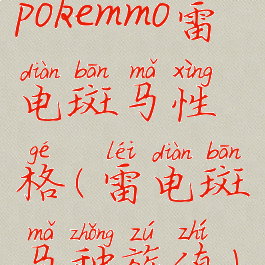 pokemmo雷
diàn bān mǎ xìng
电斑马性
gé léi diàn bān
格(雷电斑
mǎ zhǒng zú zhí
马种族值)